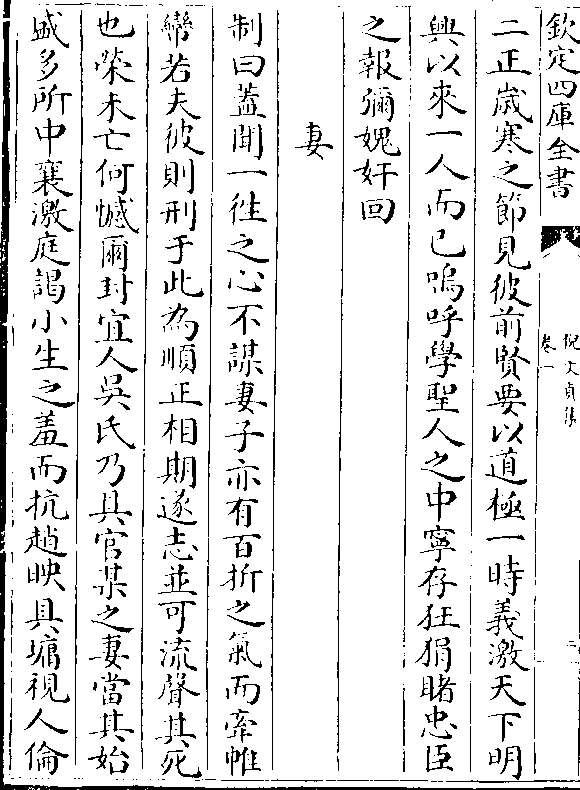 欽定四庫全書
倪文貞集
卷一
二正歲寒之節見彼前賢要以道極一時義激天下明
興以來一人而已嗚呼學聖人之中寧存狂狷睹忠臣
之報彌媿奸回
妻
制曰蓋聞一徃之心不謀妻子亦有百折之氣而牽帷
幃若夫彼則刑于此為順正相期遂志並可流聲其死
也榮未亡何憾爾封宜人吳氏乃具官某之妻當其始
盛多所中襄激庭謁小生之羞而抗趙映具墉視人倫